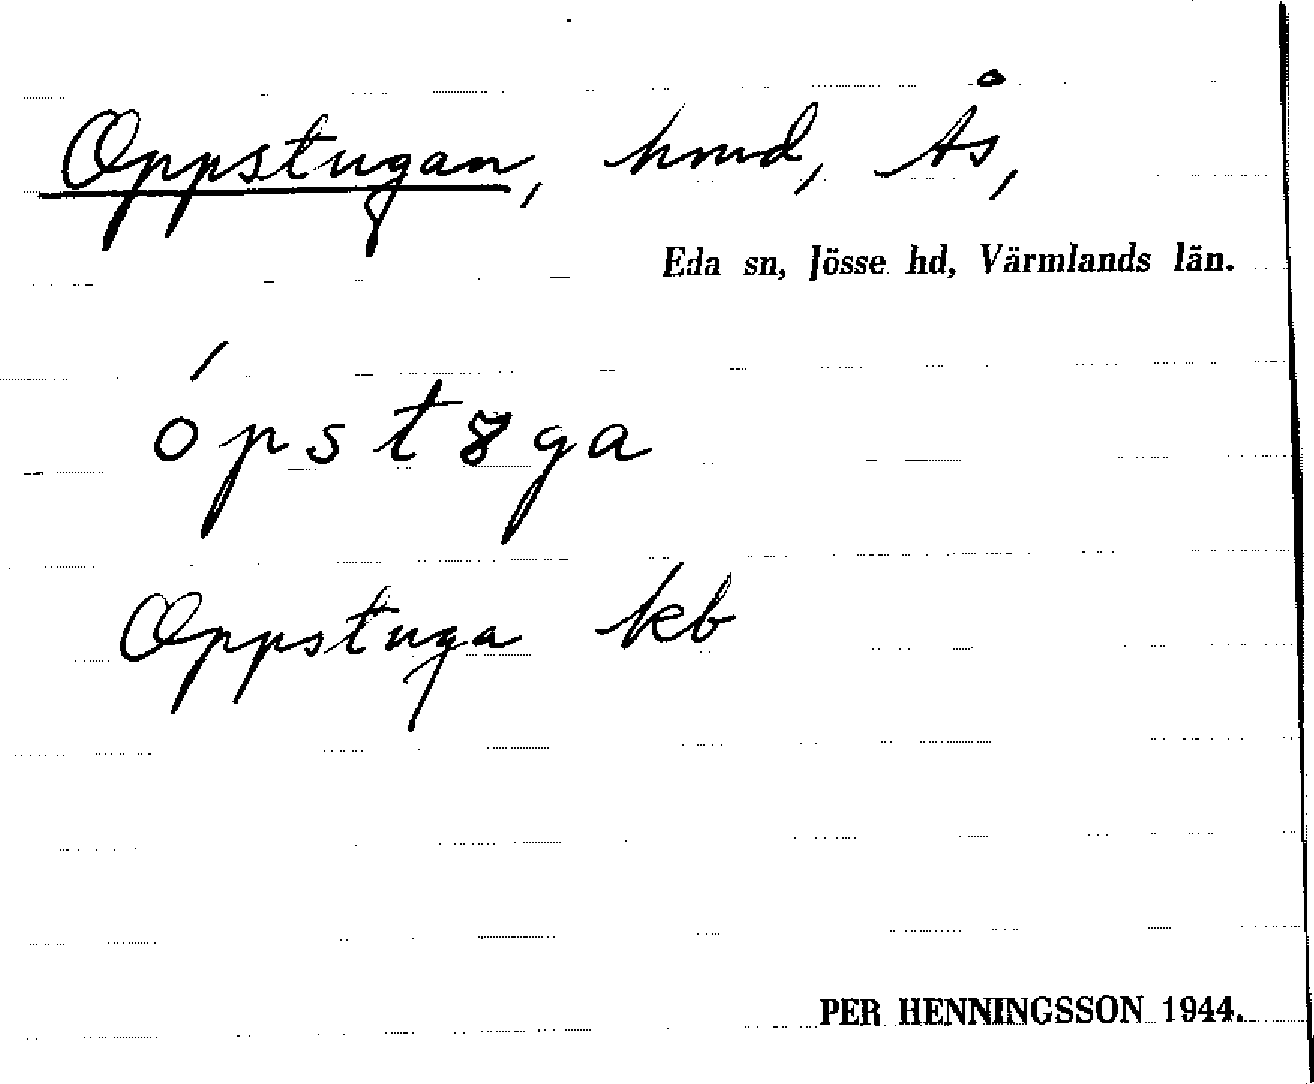 Oppstugan, hmd, Ås,
Eda sn, Jösse hd, Värmlands län.
ópstȣga
Oppstuga kb
PER HENNINGSSON 1944.